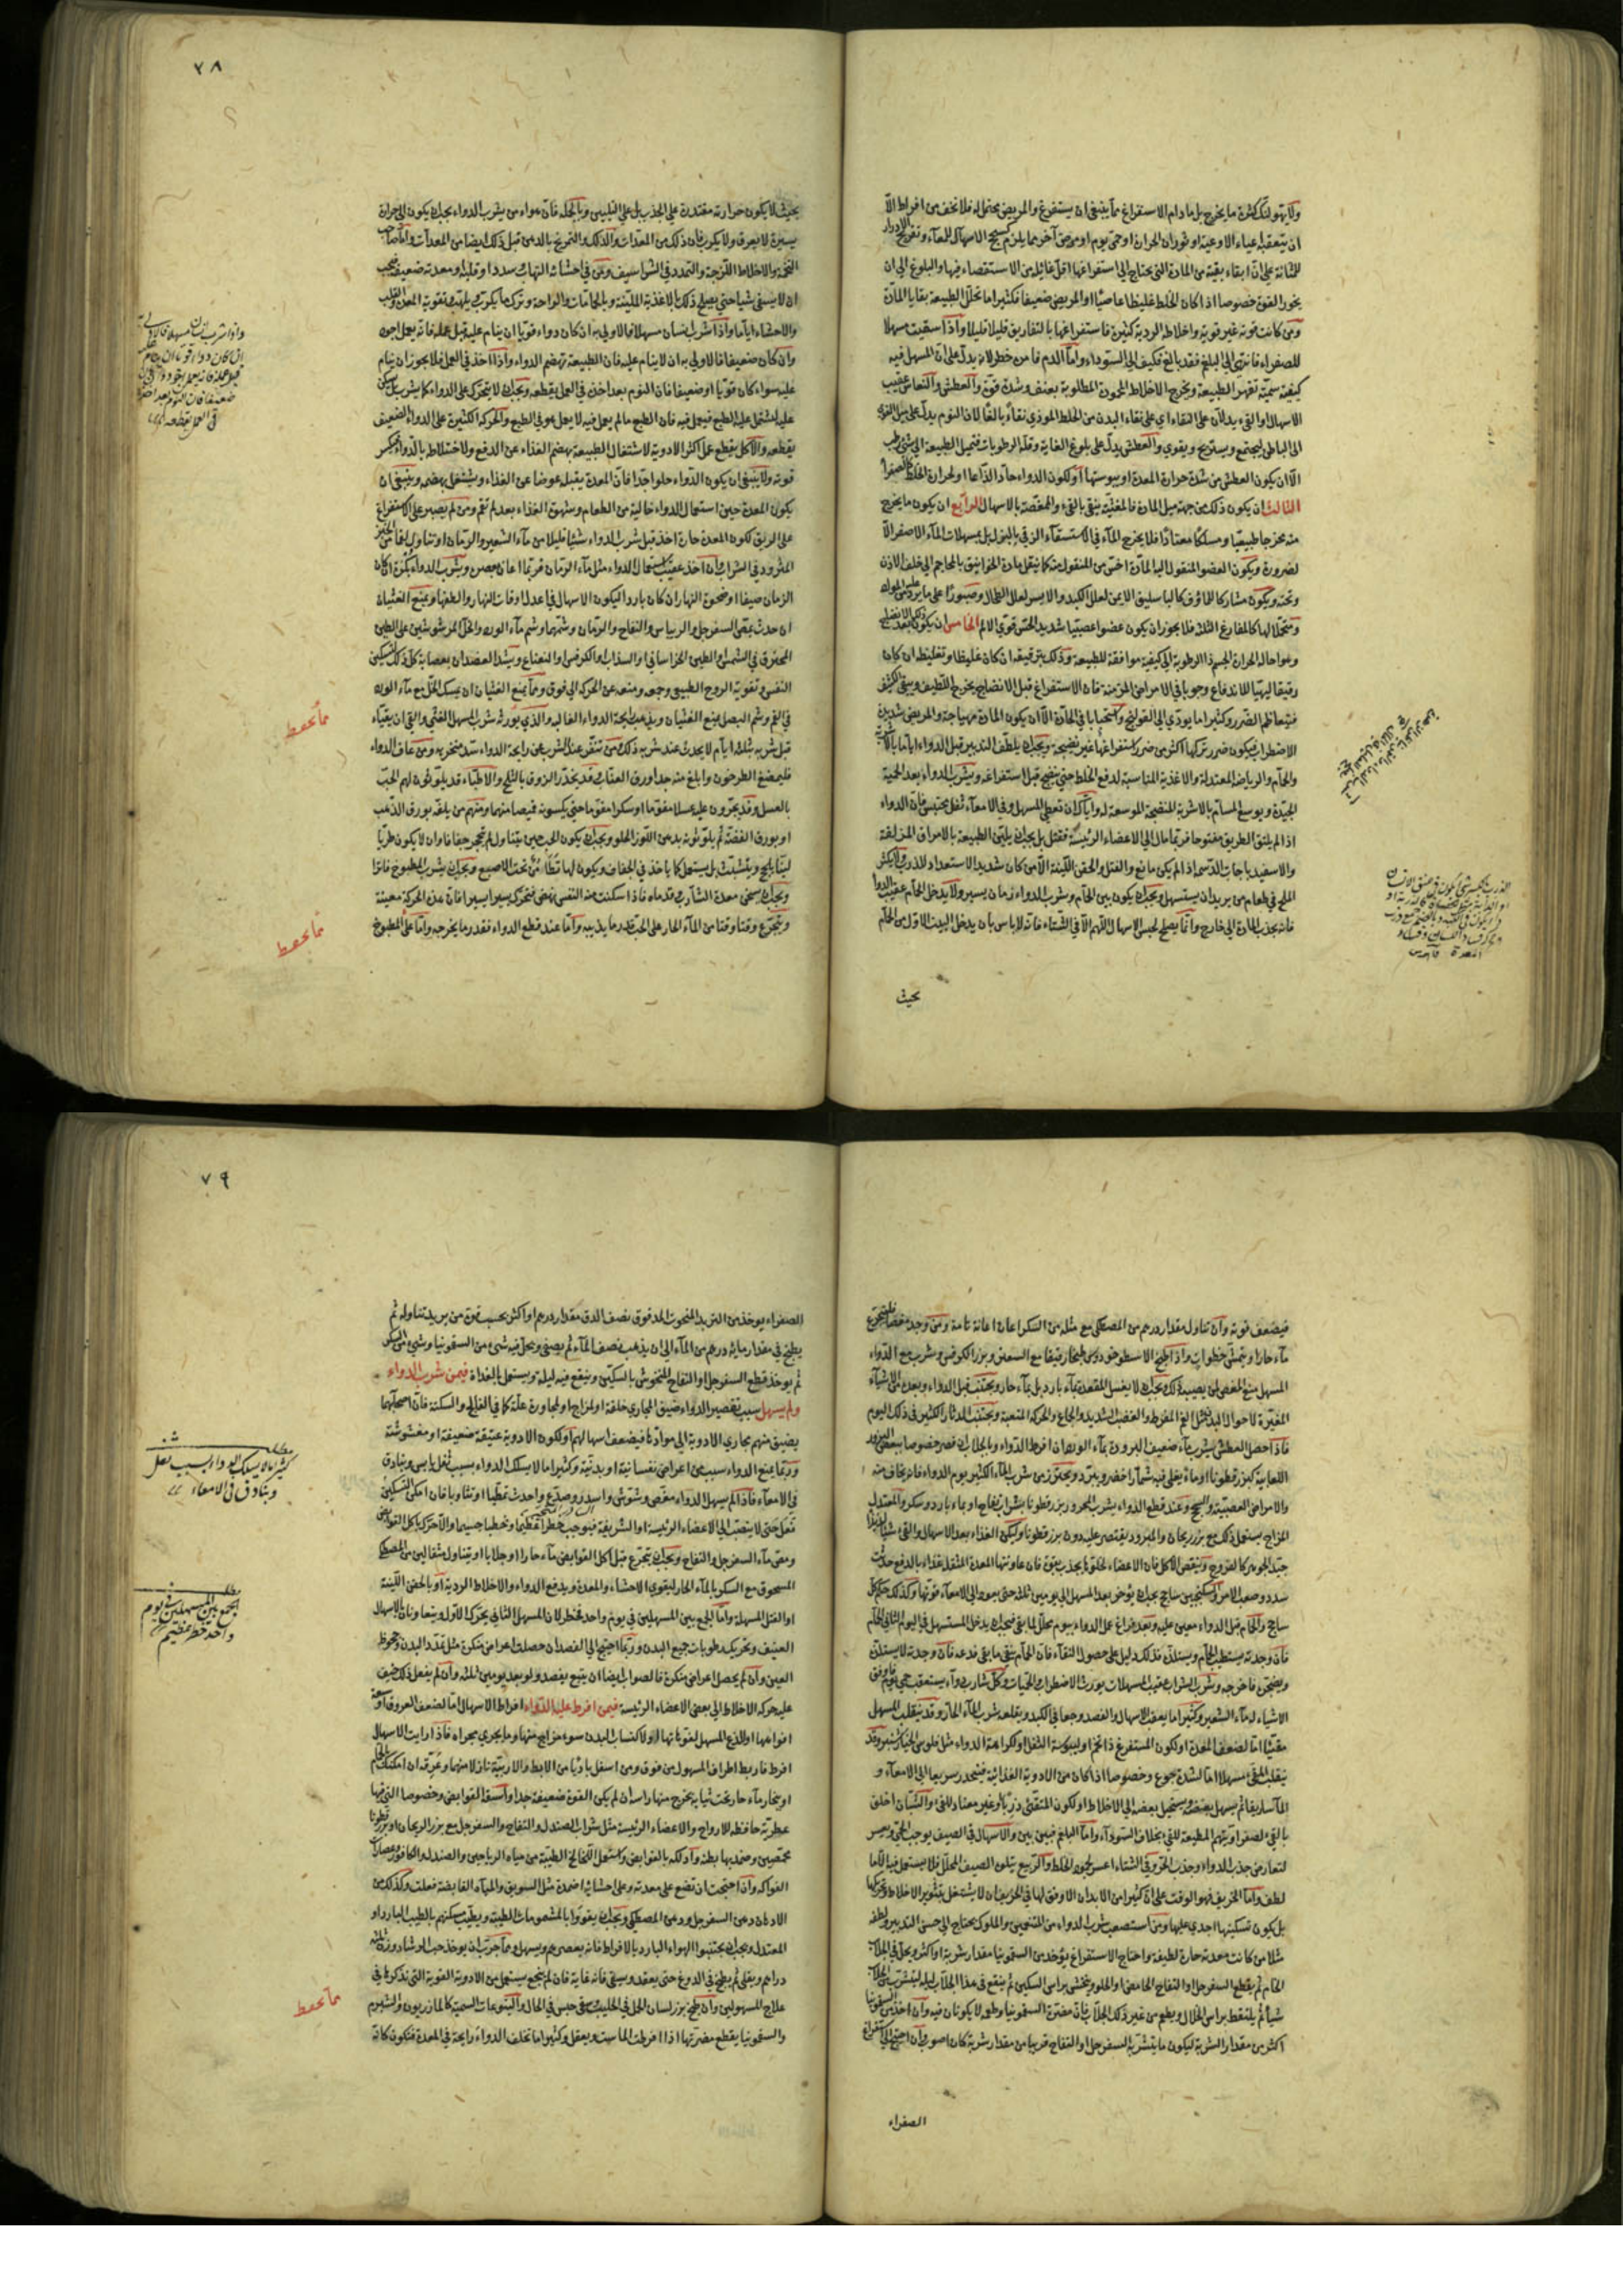 ولا يهولنك كثرة ما يخرج بل ما دام الاستفراغ مما ينبغي ان يستفرغ والمريض محتمل له فلا تخف من افراط الا
ان يتعقبه اعياء الاوعية او ثوران الحرارة او حمى يوم او مرض آخر مما يلزم كسحج الاسهال للمعاء وتقريح الادرار
للمثانة على ان ابقاء بقية من المادة التي يحتاج الى استفراغها اقل غائلة من الاستقصاء فيها والبلوغ الى ان
يخور القوة خصوصا اذا كان الخلط غليظا عاصيا او المريض ضعيفا فكثيرا ما تحلل الطبيعة بقايا المادة
ومن كانت قوته غير قوية واخلاطه الردية كثيرة فاستفراغها بالتفاريق قليلا قليلا واذا اسقيت مسهلا
للصفراء فانتهى الى البلغم فقد بالغ فكيف الى السوداء واما الدم فامن خطر لانه يدل على ان المسهل فيه
كيفية سمية تقهر الطبيعة وتخرج الاخلاط المحمودة المطلوبة بعنف وشدة قوة والعطش والنعاس عقيب
الاسهال او القيء يدلان على النقاء اي على نقاء البدن من الخلط الموذي نقاء بالغا لان النوم يدل على ميل القوى
الى الباطن ليجتمع ويستريح ويقوى والعطش يدل على بلوغ الغاية وقلة الرطوبات فتميل الطبيعة الى شيء رطب
الا ان يكون العطش من شدة حرارة المعدة او يبوستها او لكون الدواء حادا لذاعا او لحرارة الخلط كالصفراء
الثالث ان يكون ذلك من جهة ميل المادة فالمغثية ينقى بالقيء والممغصة بالاسهال الرابع ان يكون ما يخرج
منه مخرجا طبيعيا ومسلكا معتادا فلا يخرج الماء في الاستسقاء الزقي بالبزل بل بمسهلات الماء الاصفر الا
لضرورة ويكون العضو المنقول اليه المادة اخس من المنقول منه كما ينقل مادة الخوانيق بالمحاجم الى خلف الاذن
وتحته ويكون مشاركا للماؤف كالباسليق الايمن لعلل الكبد والايسر لعلل الطحال وصبورا على ما يرد
ومتحملا لها كالمفارغ الثلثة فلا يجوز ان يكون عضوا عصبيا شديد الحس قوي الالم الخامس ان يكون ذلك بعد الانضاج
وهو احالة الحرارة الجسم ذا الرطوبة الى كيفية موافقة للطبيعة وذلك بترقيقه ان كان غليظا وتغليظه ان كان
رقيقا ليتهيأ للاندفاع وجوبا في الامراض المزمنة فان الاستفراغ قبل الانضاج يخرج اللطيف ويبقى الكثيف
فيتعاظم الضرر وكثيرا ما يودي الى القولنج واستحبابا في الحادة الا ان يكون المادة مهياجة والمريض شديد
الاضطراب فيكون ضرر تركها اكثر من ضرر استفراغها غير نضيجة ويجب ان يلطف التدبير قبل الدواء اياما بالاشربة
والحمام والرياضة المعتدلة والاغذية المناسبة لدفع الخلط حتى ينضج قبل استفراغه ويشرب الدواء بعد الحمية
الجيدة ويوسع المسام بالاشربة المنضجة الموسعة له واياك ان تعطي المسهل وفي الامعاء ثفل يحتبس فان الدواء
اذا لم يلتق الطريق مفتوحا فربما مال الى الاعضاء الرئيسة فقتل بل يجب ان يلين الطبيعة بالامراق المزلقة
والاسفيدباجات الدسمة اذا لم يكن مانع والفتل والحقن اللينة الا من كان شديد الاستعداد للذرب وليكثر
الملح في طعام من يريد ان يستسهل ويجب ان يكون بين الحمام وشرب الدواء زمان يسير ولا يدخل الحمام عقيب الدواء
فانه يجذب المادة الى خارج وانما يصلح لحبس الاسهال اللهم الا في الشتاء فانه لا باس بان يدخل البيت الاول من الحمام
بحيث
٧٨
بحيث لا يكون حرارته مقتدرة على الجذب بل على التليين وبالجملة فان هواء من يشرب الدواء يجب ان يكون الى حرارة
يسيرة لا يعرق ولا يكرب فان ذلك من المعدات والدلك والتمريخ بالدهن قبل ذلك ايضا من المعدات واما صاحب
التخمة والاخلاط اللزجة والتمدد في الشراسيف ومن في احشائه التهاب وسدد او قلبه او معدته ضعيف فيجب
ان لا يسقى شيئا حتى يصلح ذلك بالاغذية الملينة وبالحمامات والراحة وترك ما يكرب ويلهب وتقوية المعدة والقلب
والاحشاء اياما واذا شرب انسان مسهلا فالاولى به ان كان دواءه قويا ان ينام عليه قبل عمله فانه يعمل اجود
وان كان ضعيفا فالاولى به ان لا ينام عليه فان الطبيعة تهضم الدواء واذا اخذ في العمل فلا يجوز ان ينام
عليه سواء كان قويا او ضعيفا فان النوم بعد اخذه في العمل يقطعه ويجب ان لا يتحرك على الدواء كما يشرب بل يسكن
عليه ليشتمل عليه الطبع فيعمل فيه فان الطبع ما لم يعمل فيه لا يعمل هو في الطبع والحركة الكثيرة على الدواء الضعيف
يقطعه والاكل يقطع عمل اكثر الادوية لاشتغال الطبيعة بهضم الغذاء عن الدفع ولاختلاطه بالدواء فيكسر
قوته ولا ينبغي ان يكون الدواء حلوا جدا فان المعدة يقبله عوضا عن الغذاء ويشتغل بهضمه وينبغي ان
يكون المعدة حين استعمال الدواء خالية من الطعام وشهوة الغذاء بعد لم تقم ومن لم يصبر على الاستفراغ
على الريق لكون المعدة حارة اخذ قبل شرب الدواء شيئا قليلا من ماء الشعير والرمان او تناول لقما من الخبز
المثرود في الشراب وان اخذ عقيب استعمال الدواء مثل ماء الرمان فربما اعان بعصره ويشرب الدواء بكرة ان كان
الزمان صيفا او ضحوة النهار ان كان باردا ليكون الاسهال في اعدل اوقات النهار والطفها ويمنع الغثيان
ان حدث بمص السفرجل والريباس والتفاح والرمان وشمها وشم ماء الورد والخل المرشوشين على الطين
المحترق في الشمس او الطين الخراساني او السذاب او الكرفس والنعناع ويشد العضدان بعصابة كل ذلك لتسكين
النفس وتقوية الروح الطبيعي وجمعه ومنعه عن الحركة الى فوق ومما يمنع الغثيان ان يمسك الخل مع ماء الورد
في الفم وشم البصل يمنع الغثيان ويذهب رايحة الدواء الغالبة والذي يورثه شرب المسهل الغثي والقيء ان يقياء
قبل شربه بثلثة ايام لا يحدث عند شربه ذلك ومن تنفر عند الشرب من رايحة الدواء سد منخريه ومن عاف الدواء
فليمضغ الطرخون وابلغ منه جدا ورق العناب وقد يخدر الذوق بالثلج والاطباء قد يلوثون لهم الحب
بالعسل وقد يجرون عليه عسلا مقوما او سكرا مقوما حتى يكسونه قميصا منهما ومنهم من يلفه بورق الذهب
او بورق الفضة ثم يلوثونه بدهن اللوز الحلو ويجب ان يكون الحب حين يتناول لم يتحجر جفافا وان لا يكون طريا
لينا يلحج ويتشبث بل يستعمل كما ياخذ في الجفاف ويكون لها تطامن تحت الاصبع ويجب ان يشرب المطبوخ فاترا
ويجب ان يسخن معدة الشارب وقدماه فاذا سكنت منه النفس نهض فتحرك يسيرا يسيرا فان هذه الحركة معينة
ويتجرع وقتا وقتا من الماء الحار على الحب قدر ما يذيبه واما عند قطع الدواء فقدر ما يخرجه واما على المطبوخ
مما يحفظ
مما يحفظ
فيضعف قوته وان تناول مقدار درهم من المصطكى مع مثله من السكر اعان اعانة تامة ومن وجد مغصا فليتجرع
ماء حارا ويتمشى خطوات واذا طبخ الاسطوخودوس طبخا رقيقا مع السعتر وبزر الكرفس وشرب مع الدواء
المسهل منع المغص لمن يصيبه ذلك ويجب ان لا يغسل المقعدة بماء بارد بل بماء حار ويجتنب قبل الدواء وبعده الاشياء
المغيرة لاحوال البدن مثل الغم المفرط والغضب الشديد والجماع والحركة المتعبة ويجتنب الدثار الكثير في ذلك اليوم
فاذا حصل العطش يشرب ماء ضعيف البرودة بماء الورد ان افرط الدواء وبالجلاب ان قصر خصوصا ببعض البزور
اللعابية كبزر قطونا او ماء يغلى فيه شمار اخضر ويبرد ويحترز من شرب الماء الكثير يوم الدواء فانه يخاف منه
والامراض العصبية والسحج وعند قطع الدواء يشرب المحرور بزر قطونا بشراب تفاح او بماء بارد وسكر والمعتدل
المزاج يستعمل ذلك مع بزر ريحان والمبرود يقتصر عليه دون بزر قطونا وليكن الغذاء بعد الاسهال والقيء شيئا لذيذا
جيد الجوهر كالفروج وينقص الاكل فان الاعضاء لخلوها يجذب بقوة فان عاونتها المعدة المثقلة غذاء بالدفع حدثت
سدد وصعب الامر والسكنجبين ساذج يجب ان يؤخر بعد المسهل الى يومين ثلثة حتى يعود الى الامعاء قوتها وكذلك حكم كل
فان وجدته يستطيب الحمام ويستلذه فذلك دليل على حصول النقاء فان الحمام ينقي ما بقي فدعه فان وجدته لا يستلذه
ويضجر فاخرجه وشرب الشراب عقيب المسهلات يورث الاضطراب والحميات وكل شارب دواء يستعقب حمى يوم فاوفق
الاشياء له ماء الشعير وكثيرا ما يعقب الاسهال والفصد وجعا في الكبد ويقلعه شرب الماء الحار وقد ينقلب المسهل
مقيئا اما لضعف المعدة او لكون المستفرغ ذا تخم او ليبوسة الثفل او لكراهة الدواء مثل فلوس الخيار شنبر وقد
ينقلب المقيء مسهلا اما لشدة جوع وخصوصا اذا كان من الادوية الغذائية فينحدر سريعا الى الامعاء و
الماساريقا ثم يسهل بعضه ويستحيل بعضه الى الاخلاط او لكون المتقيء ذربا او غير معتاد للقيء والشبان اخلق
بالقيء لصفراويتهم المطيعة للقيء بخلاف السوداء واما البلغم فبين بين والاسهال في الصيف يوجب الحمى ويعسر
لتعارض جذب الدواء وجذب الحر وفي الشتاء اعسر لجمود الخلط والربيع يتلوه الصيف المحلل فلا يستعمل فيه الا ما
لطف واما الخريف فهو الوقت على ان كثيرا من الابدان الاوفق لها في الخريف ان لا يشتغل بتثوير الاخلاط وتحريكها
بل يكون تسكينها اجدى عليها ومن استصعب شرب الدواء من المتنعمين والملوك يحتاج الى حسن التدبير ولطفه
مثلا من كانت معدته حارة لطيفة واحتاج الاستفراغ يؤخذ من السقمونيا مقدار شربة او اكثر ويحل في الجلاب
الخام ثم يقطع السفرجل او التفاح الحامض او الحلو وينخش براس السكين ثم ينقع في هذا الجلاب ليلة ليتشرب من الجلاب
شيئا ثم يلتقط براس الخلال ويطعم من غير ذلك الجلاب فان مضرة السقمونيا وطعمه لا يكونان فيه وان اخذ من السقمونيا
اكثر من مقدار الشربة ليكون ما يتشربه السفرجل او التفاح قريبا من مقدار شربة كان اصوب وان احتيج الى استفراغ
الصفراء
٧٩
الصفراء يوخذ من التربد المنحوت المدقوق نصف الدق مقدار درهم او اكثر بحسب قوة من يريد تناوله ثم
يطبخ في مقدار مائة درهم من الماء الى ان يذهب نصف الماء ثم يصفى ويحل فيه شيء من السقمونيا وشيء من السكر
ثم يوخذ قطع السفرجل او التفاح المنخوش بالسكين وينقع فيه ليلة ويستعمل بالغداة فيمن شرب الدواء
ولم يسهل سبب تقصير الدواء ضيق المجاري خلقة او لمزاج او لمجاورة علة كما في الفالج والسكتة فان اصحابهما
يضيق منهم مجاري الادوية الى موادها فيضعف اسهالهم او لكون الادوية عتيقة ضعيفة او مغشوشة
وربما يمنع الدواء سبب من اعراض نفسانية او بدنية وكثيرا ما لا يسلك الدواء بسبب ثفل يابس وبنادق
في الامعاء فاذا لم يسهل الدواء مغص وشوش واسدر وصدع واحدث تمطيا او تثاؤبا فان امكن التسكين
فعل حتى لا يتصبب الى الاعضاء الرئيسة والشريفة فيوجب خطرا عظيما وخطبا جسيما والا حرك باكل القوابض
ومص ماء السفرجل والتفاح ويجب ان يتجرع قبل اكل القوابض ماء حارا او جلابا او تناول مثقالين من المصطكى
المسحوق مع السكر بالماء الحار ليقوي الاحشاء والمعدة ويدفع الدواء والاخلاط الردية او بالحقن اللينة
او الفتل المسهلة واما الجمع بين المسهلين في يوم واحد فخطر لان المسهل الثاني يحرك الاول ويتعاونان بالاسهال
العنيف وتحريك رطوبات جميع البدن وربما احتيج الى الفصد ان حصلت اعراض منكرة مثل تمدد البدن وجحوظ
العين وان لم يحصل اعراض منكرة فالصواب ايضا ان يتبع بفصد ولو بعد يومين ثلثة وان لم يفعل ذلك خيف
عليه حركة الاخلاط الى بعض الاعضاء الرئيسة فيمن افرط عليه الدواء افراط الاسهال اما لضعف العروق او سعة
افواهها او للذع المسهل لفوهاتها او لاكتساب البدن سوء مزاج منها وما يجري مجراه فاذا رايت الاسهال
افرط فاربط اطراف المسهول من فوق ومن اسفل بادئا من الابط والاربية نازلا منهما وعرقه ان امكنك بالحمام
او بخار ماء حار تحت ثيابه يخرج منها راسه ان لم يكن القوة ضعيفة جدا واسقه القوابض وخصوصا التي فيها
عطرية حافظة للارواح والاعضاء الرئيسة مثل شراب الصندل والتفاح والسفرجل مع بزر الريحان او بزر قطونا
محمصين وضمد بها بطنه وادلكه بالقوابض واستعمل اللخالخ الطيبة من مياه الرياحين والصندل والكافور وعصارات
الفواكه وان احتجت ان تضع على معدته وعلى احشائه اضمدة مثل السويق والمياه القابضة فعلت وكذلك من
الادهان دهن السفرجل ودهن المصطكى ويجب ان يقووا بالمشمومات الطيبة ويطيب مسكنهم بالطيب البارد او
المعتدل ويجب ان يجتنبوا الهواء البارد بالافراط فانه يعصرهم ويسهل ومما جرب ان يوخذ حب الرشاد وزن ثلثة
دراهم ويقلى ثم يطبخ في الدوغ حتى يعقد ويسقى فانه غاية فان لم ينجع يستعمل من الادوية القوية التي نذكرها في
علاج المسهولين وان طبخ بزر لسان الحمل في الحليب وسقي حبس في الحال واليتوعات السمية كالمازريون والشبرم
والسقمونيا يقطع مضرتها اذا افرطت الماست ويعقل وكثيرا ما تخلف الدواء رايحة في المعدة فتكون كانه
مطلب
كثيرا ما لا يسلك الدواء بسبب ثفل
وبنادق في الامعاء
مطلب
الجمع بين المسهلين في يوم
واحد خطر عظيم
مما يحفظ